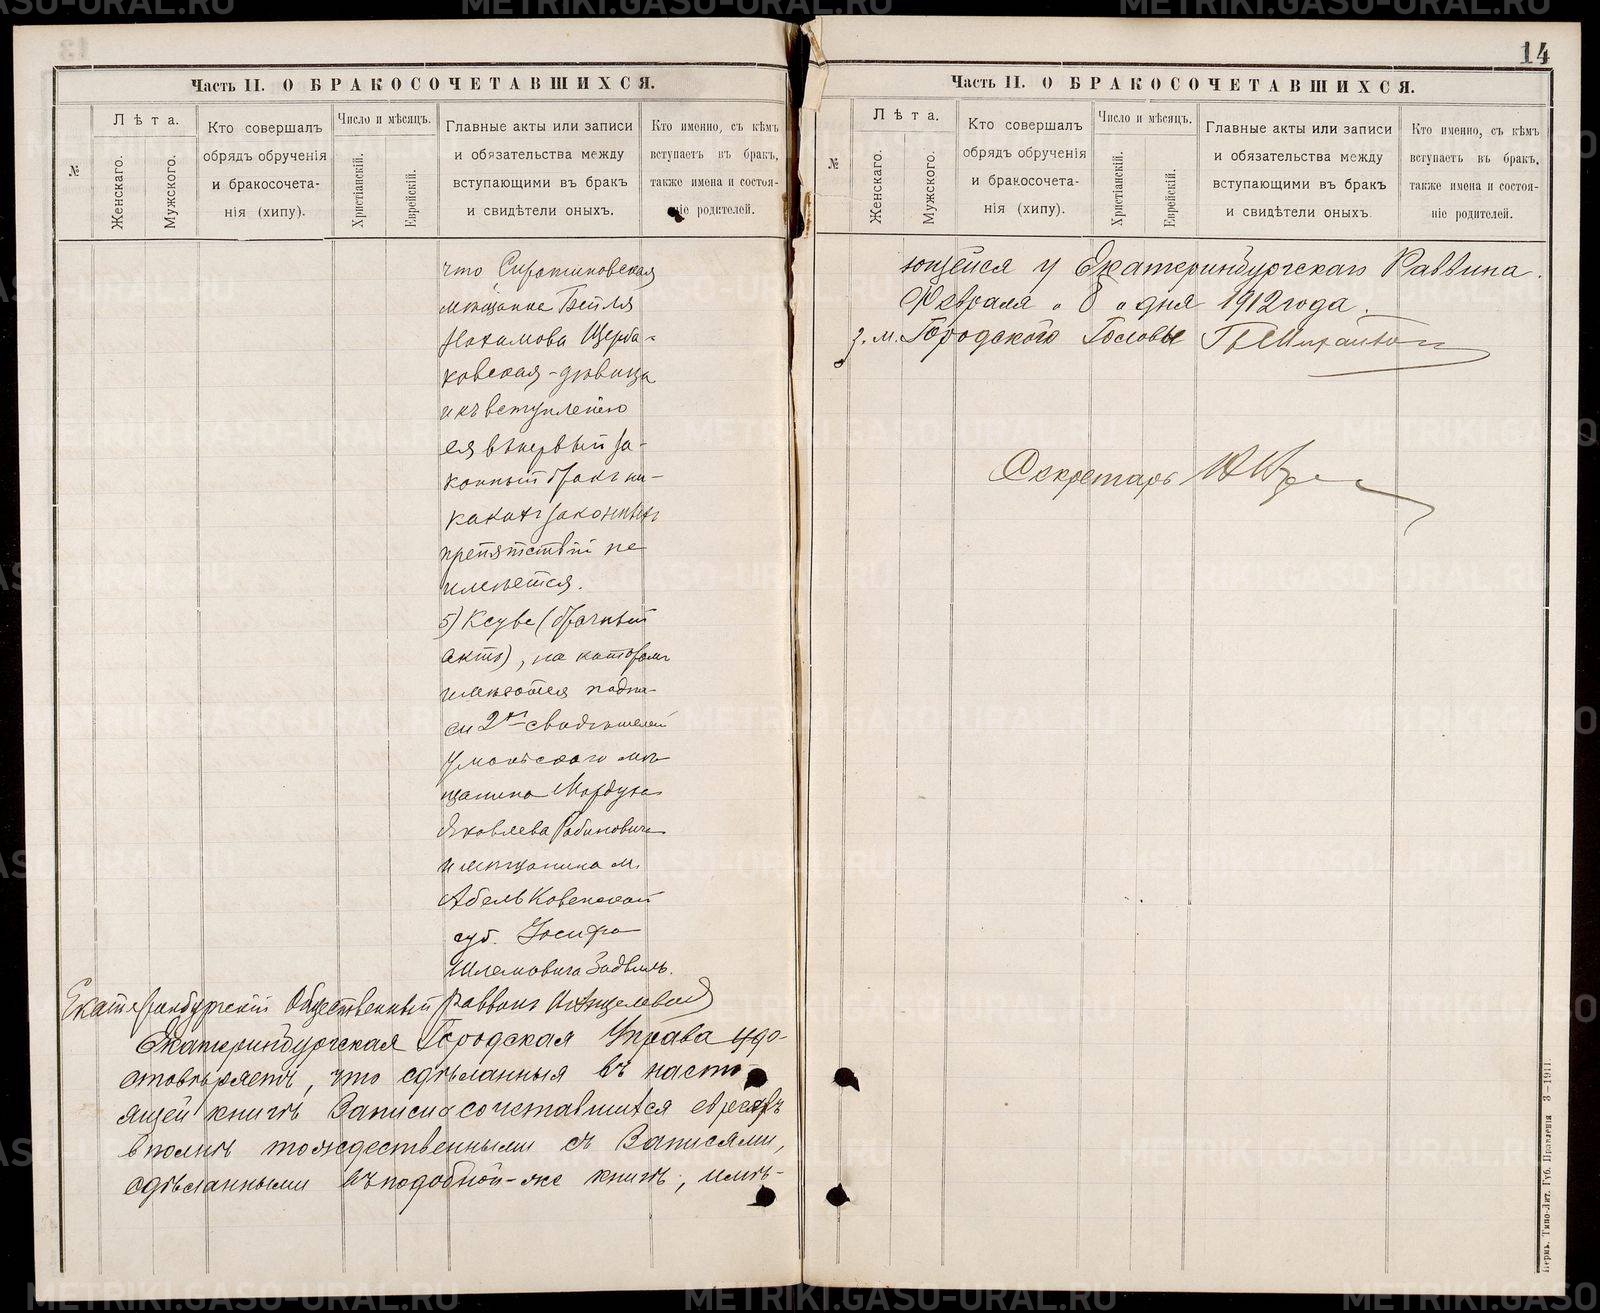 Часть II. О БРАКОСОЧЕТАВШИХСЯ.
№
Лѣта.
Женскаго.
Мужского.
Кто совершалъ
обрядъ обрученія
и бракосочета-
нія (хипу).
Число и мѣсяцъ.
Христіанскій.
Еврейскій.
Главные акты или записи
и обязательства между
вступающими въ бракъ
и свидѣтели оныхъ.
Кто именно, съ кѣмъ
вступаетъ въ бракъ,
также имена и состоя-
ніе родителей.
что Сиротиновская
мѣщанка Бейля
Нахимова Щерба-
ковская - дѣвица
и къ вступленію
ея въ первый за-
конный бракъ ни-
какихъ законныхъ
препятствій не
имѣется.
5) Ксуве (брачный
актъ), на которомъ
имѣются подпи-
си 2хъ свидѣтелей
Уманскаго мѣ-
щанина Мордуха
Яковлева Рабиновича
и мѣщанина м.
Абель Ковенской
губ. Іосифа
Шлемовича
Екатеринбургскій Общественный раввинъ
Екатеринбургская Городская Управа удо-
стовѣряетъ, что сдѣланныя въ насто-
ящей книгѣ Записи о сочетавшихся евреевъ
вполнѣ тождественными съ Записями,
сдѣланными въ подобной-же книгѣ, имѣ-
14
Часть II. О БРАКОСОЧЕТАВШИХСЯ.
№
Лѣта.
Женскаго.
Мужского.
Кто совершалъ
обрядъ обрученія
и бракосочета-
нія (хипу).
Число и мѣсяцъ.
Христіанскій.
Еврейскій.
Главные акты или записи
и обязательства между
вступающими въ бракъ
и свидѣтели оныхъ.
Кто именно, съ кѣмъ
вступаетъ въ бракъ,
также имена и состоя-
ніе родителей.
ющейся у Екатеринбургскаго Раввина.
Февраля „ 8 „ дня 1912 года.
З. м. Городского Головы
Секретарь
Пермь. Типо-Лит. Губ. Правленія 3-1911.
METRIKI.GASO-URAL.RU